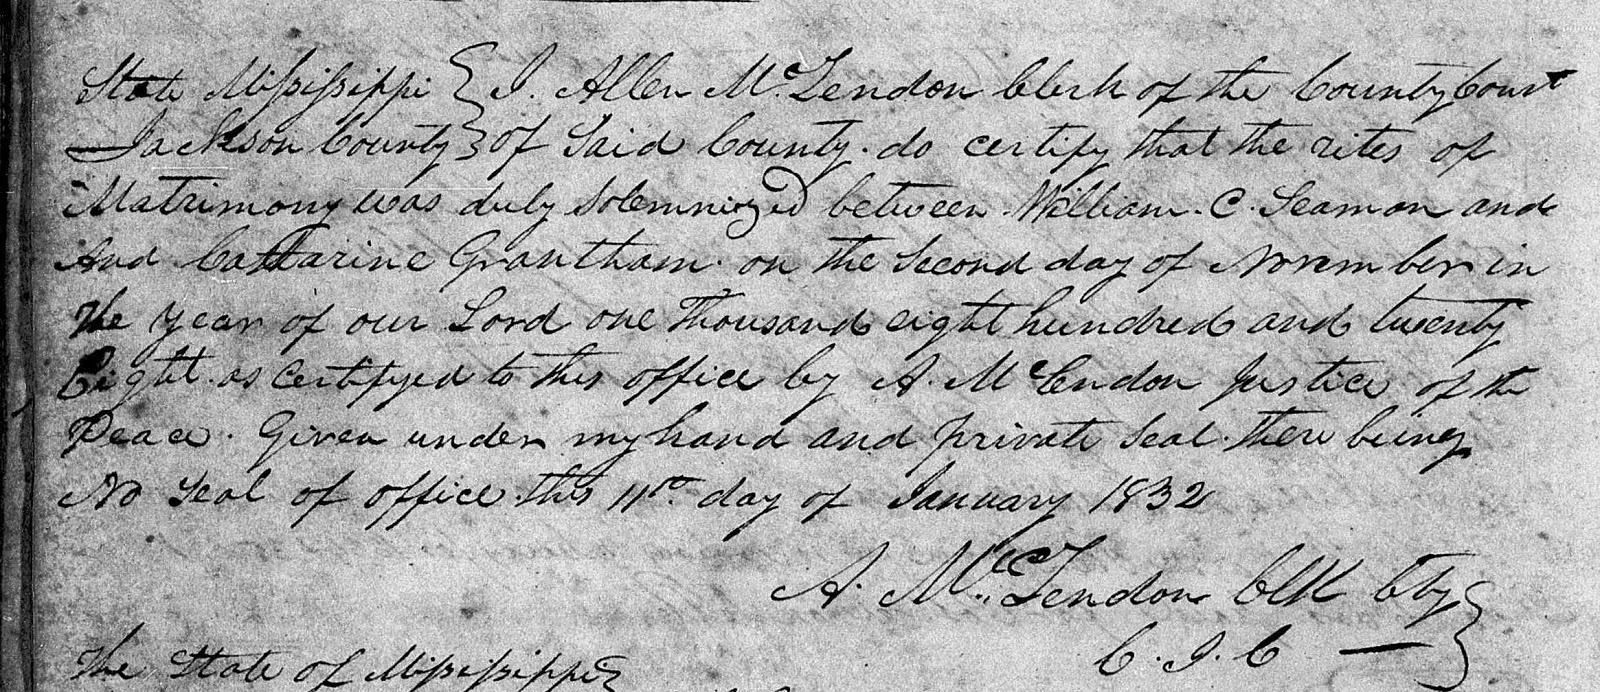 State Mississippi } I. Allen McLendon Clerk of the County Court
Jackson County } of Said County. do certify that the rites of
Matrimony was duly Solemnized between William. C. Seaman and
And Cattarine Grantham. on the Second day of November in
The year of our Lord one Thousand eight hundred and twenty
Eight. as Certifyed to this office by A. McLendon Justice of the
Peace. Given under my hand and private Seal. there being
No Seal of office. this 11th day of January 1832
A. McLendon Clk Cty }
C. J. C — }
The State of Mississippi }